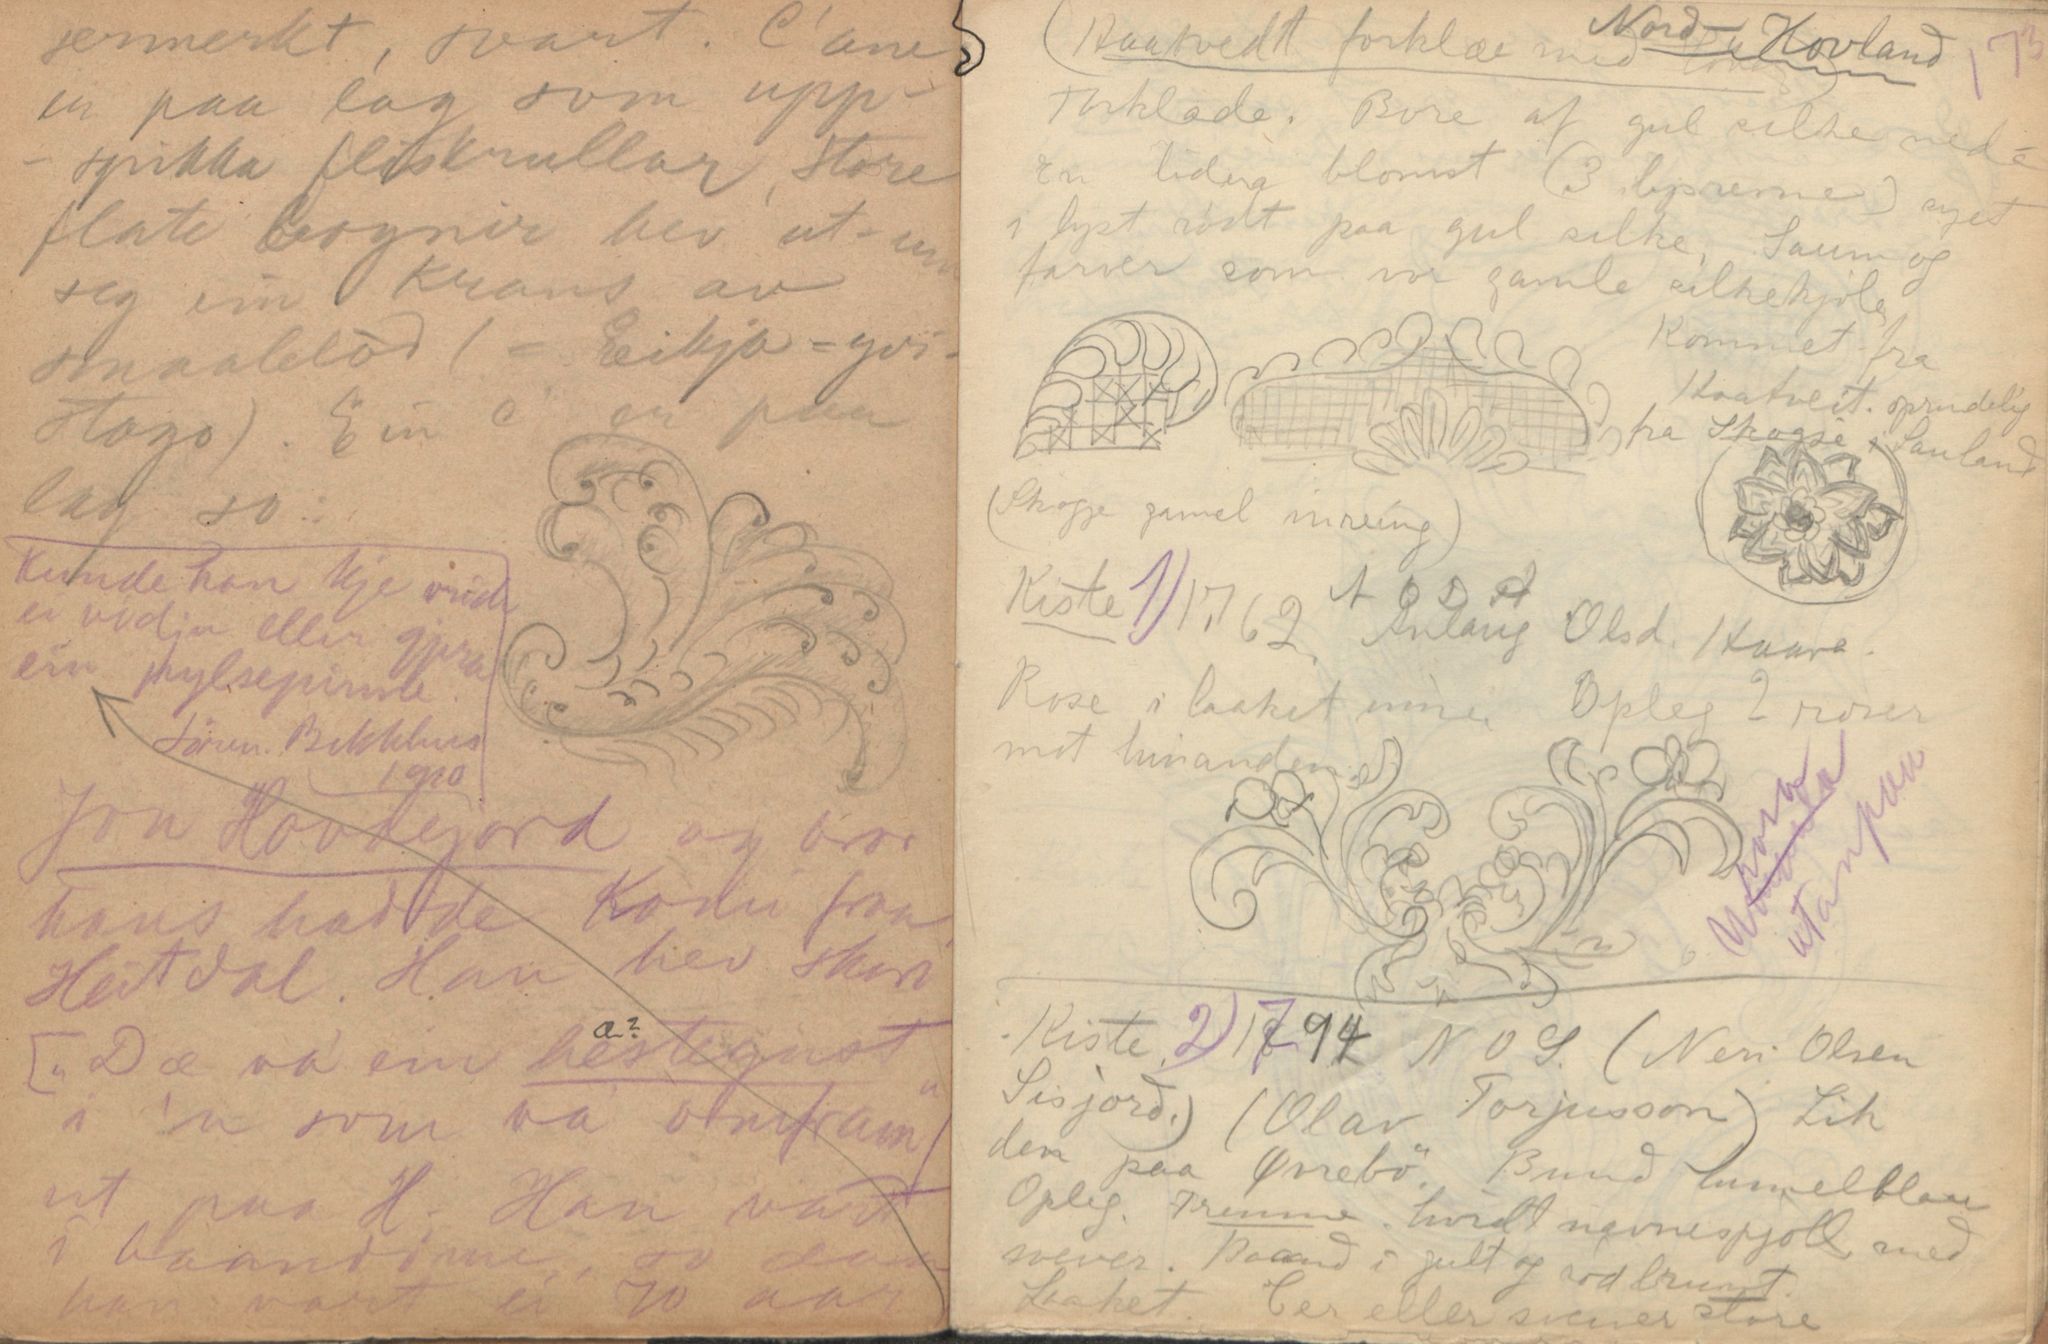 jermerkt, svart. C'ane
er paa lag som upp-
-spikka fliskrullar, store
flate bognir hev ut-um
seg ein krans av
smaablöd (= Eikja = gvi-
stogo). Ein C er paa
lag so:
Kunde han kje vride
ei vidju eller gjøra
ein pylsepinne.
Søren. Bekkhus
1910
Jon Hovdejord og bror
hans hadde Kodii fraa
Heitdal. Han hev skore
[„Dæ va ein hestegnist
a?
i 'n som va omfram"
ut paa H. Han vart
i baanddome, so
han vart ei 70 aar
173
Nord-Hovland
(Haatvedt forklæ med
Forklæde. Bore af gul silke ned-
En lidig blomst (3 lysrenne) syet
i lyst rødt paa gul silke. Saum og
farver som vor gamle silkekjole
Kommet fra
Haatveit. oprindelig
fra Skogje i Sauland
(Skogje gamel inreing)
Kiste 1) 1762. A O D H
Anlaug Olsd. Haave.
Rose i laaket inni. Opleg 2 roser
mot hinanden.
utanpaa
Kiste 2) 1794 N O S. (Neri Olsen
Sisjord.) (Olav Torjusson) Lik
den paa Øvrebö. Bund himmelblaa
Opleg. Fremme. hvidt navnespjöll med
svever. Baand i gult og rødbrunt.
Laaket. C'er eller svever store